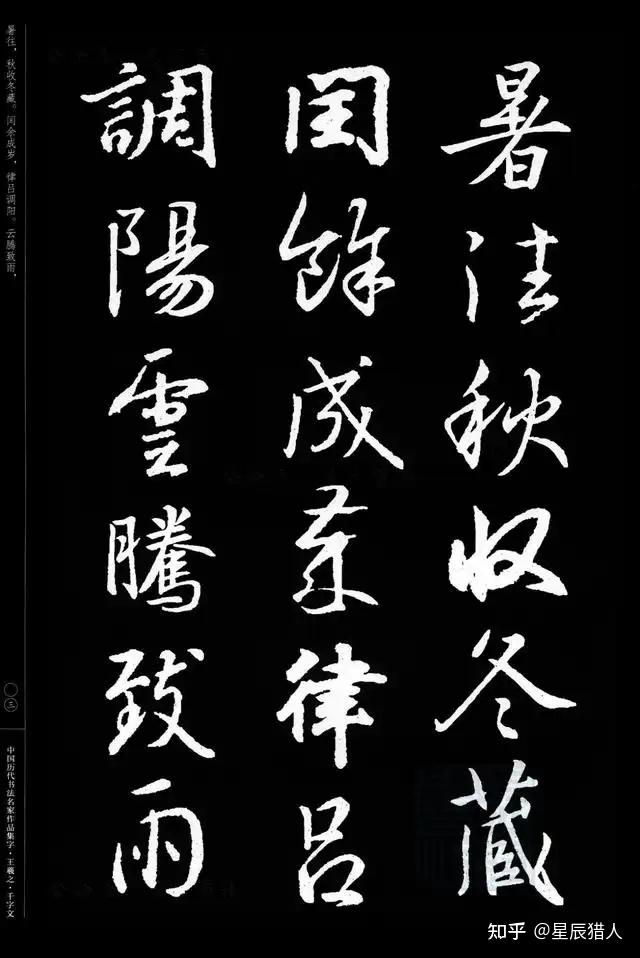 暑往秋收冬藏
閏餘成歲律呂
調陽雲騰致雨
暑往，秋收冬藏。闰余成岁，律吕调阳。云腾致雨，
〇三
中国历代书法名家作品集字·王羲之·千字文
知乎 @星辰猎人